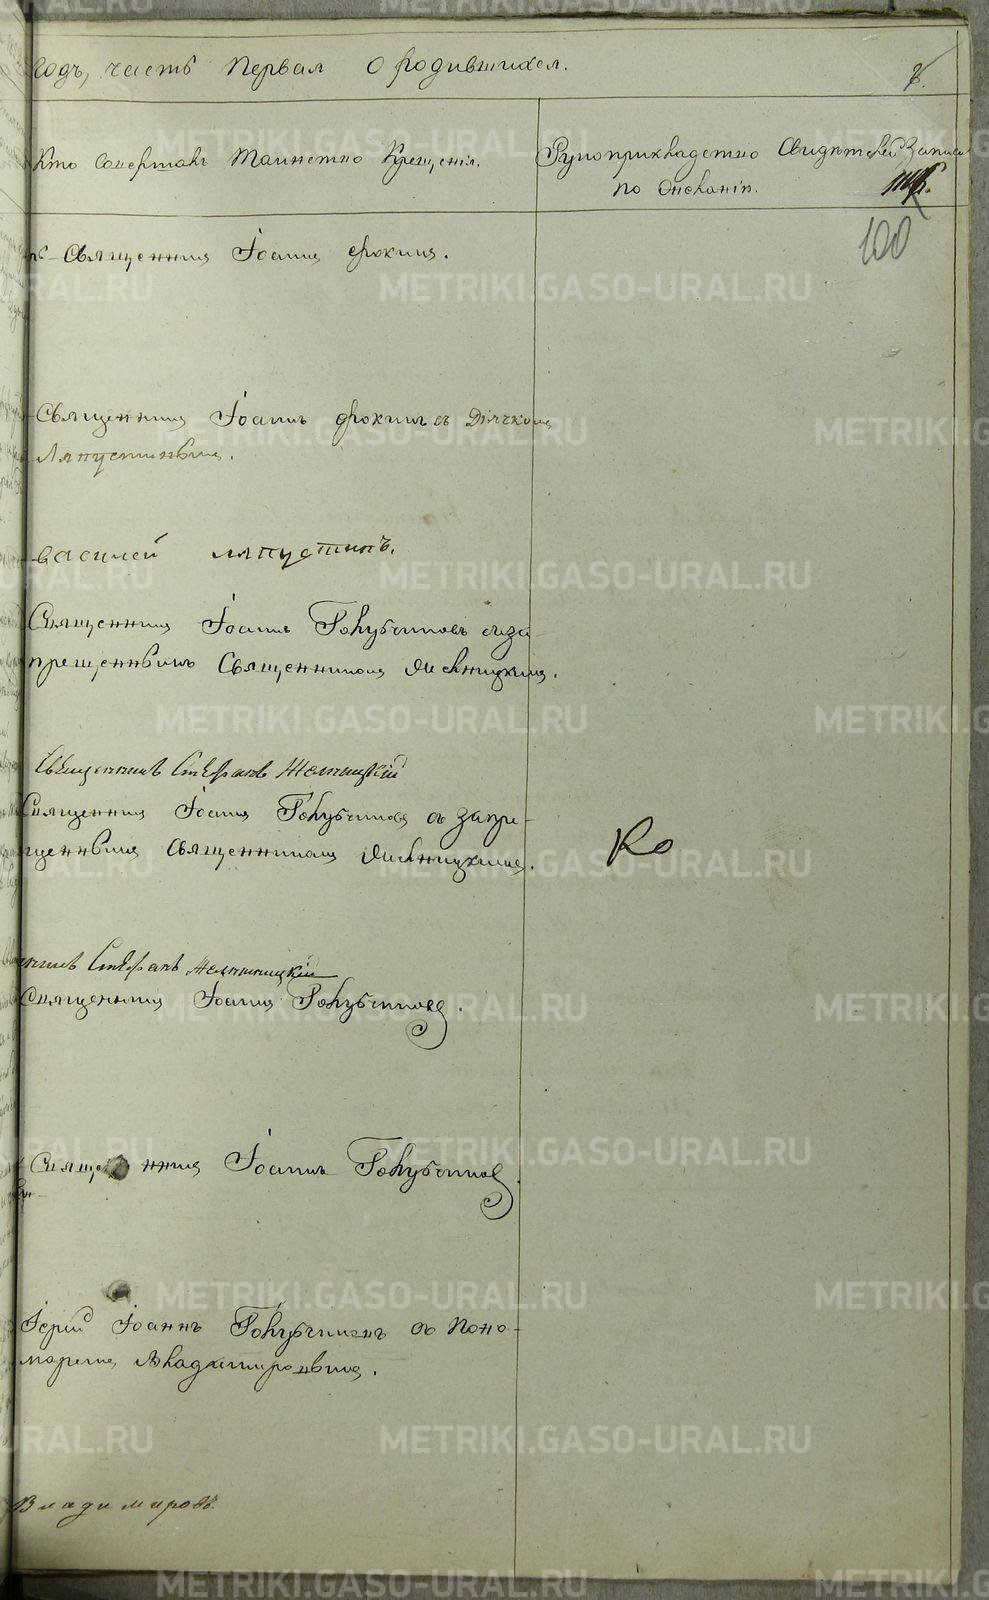 годъ, часть первая о родившихся.
Кто совершалъ Таинство Крещенія.
Рукоприкладство Свидѣтелей Записи
по желанію.
100
Священникъ Іоаннъ Фокинъ.
Священникъ Іоаннъ Фокинъ съ Дьячкомъ
Ляпустинымъ.
Василей Ляпустинъ.
Священникъ Іоаннъ Голубчиковъ съ за-
прещеннымъ Священникомъ
Священникъ Стефанъ
Священникъ Іоаннъ Голубчиковъ съ запре-
щеннымъ Священникомъ
Ко
Стефанъ
Священникъ Іоаннъ Голубчиковъ.
Священникъ Іоаннъ Голубчиковъ.
Іерей Іоаннъ Голубчиковъ съ Поно-
маремъ Владимировымъ.
Владимировъ.
METRIKI.GASO-URAL.RU